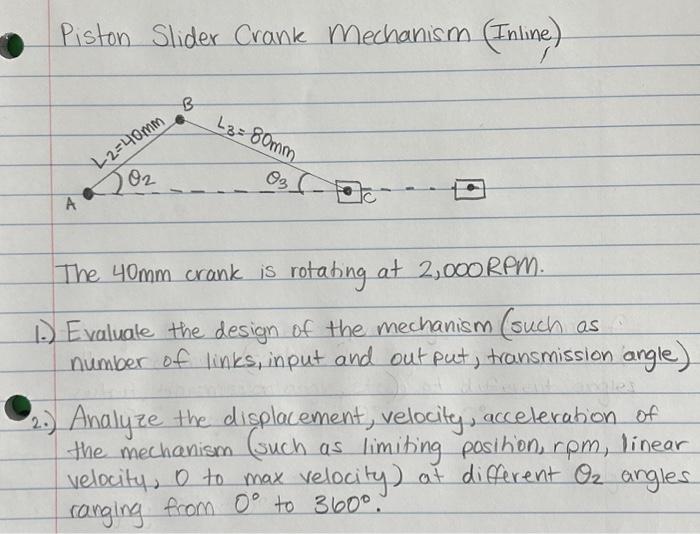 Piston Slider Crank Mechanism (Inline)
B
L2=40mm
L3=80mm
θ2
θ3
A
C
The 40mm crank is rotating at 2,000RPM.
1.) Evaluate the design of the mechanism (such as
number of links, input and output, transmission angle)
2.) Analyze the displacement, velocity, acceleration of
the mechanism (such as limiting position, rpm, linear
velocity, 0 to max velocity) at different θ2 angles
ranging from 0° to 360°.